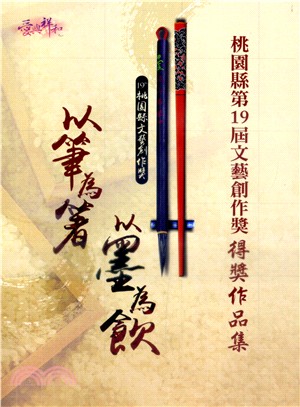 桃園縣第19屆文藝創作獎得獎作品集
19th桃園縣文藝創作獎
以筆為箸
以墨為飲
愛與祥和